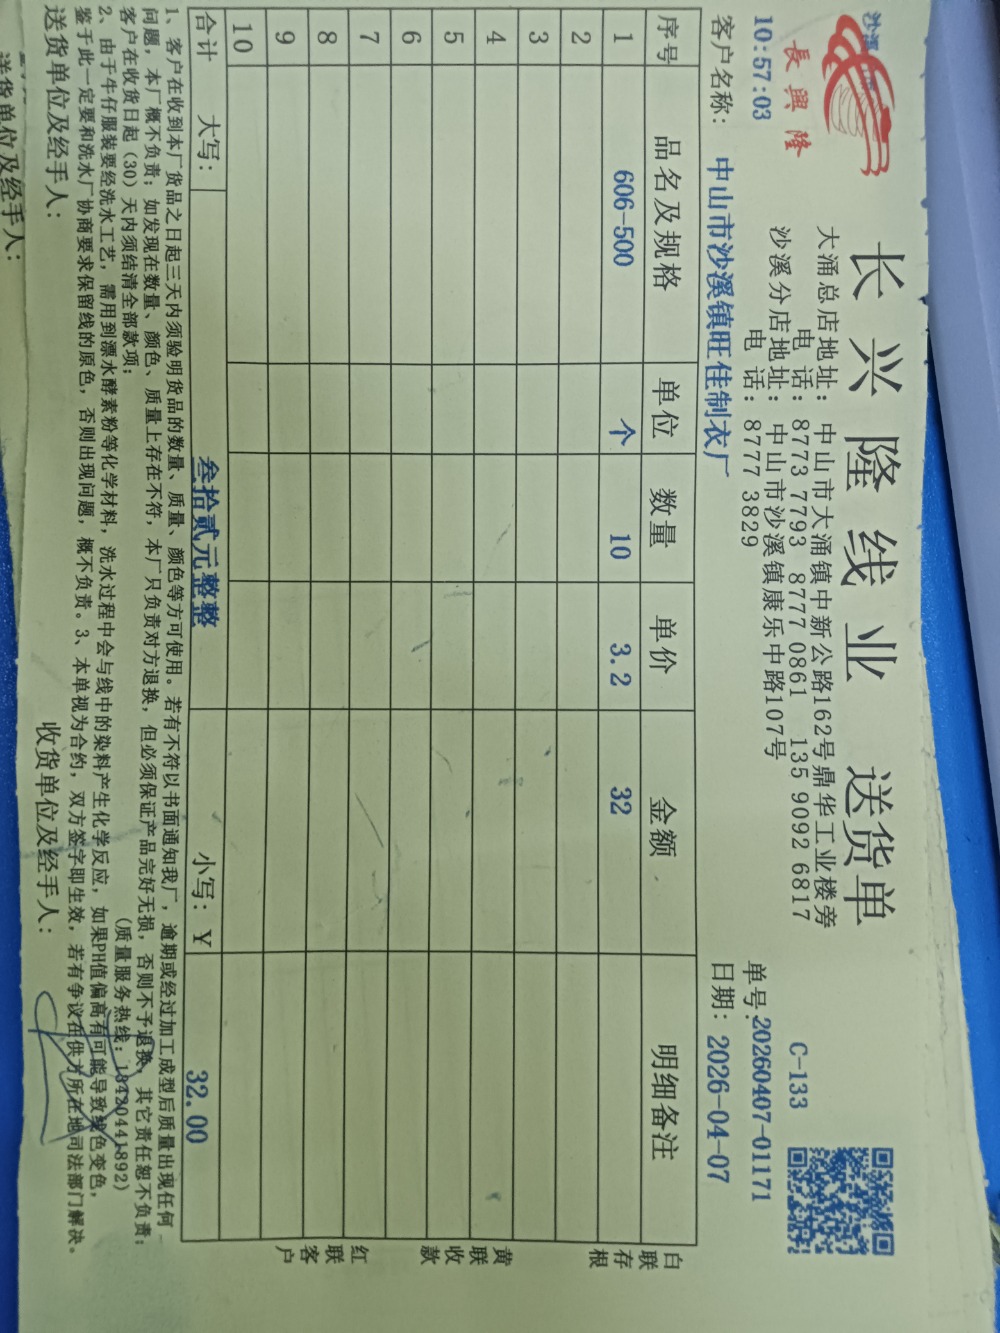 沙溪
長興隆
长兴隆线业 送货单
大涌总店地址：中山市大涌镇中新公路162号鼎华工业楼旁
电 话：8773 7793 8777 0861 135 9092 6817
沙溪分店地址：中山市沙溪镇康乐中路107号
电 话：8777 3829
C-133
10:57:03
单号:20260407-01171
客户名称：中山市沙溪镇旺佳制衣厂
日期：2026-04-07
序号 品名及规格 单位 数量 单价 金额 明细备注
1 606-500 个 10 3.2 32
2
3
4
5
6
7
8
9
10
合计 大写： 叁拾贰元整整 小写：￥ 32.00
白联存根
黄联收款
红联客户
1、客户在收到本厂货品之日起三天内须验明货品的数量、质量、颜色等方可使用。若有不符以书面通知我厂，逾期或经过加工成型后质量出现任何
问题，本厂概不负责；如发现在数量、颜色、质量上存在不符，本厂只负责对方退换，但必须保证产品完好无损，否则不予退换，其它责任恕不负责；
客户在收货日起（30）天内须结清全部款项；
（质量服务热线：18420441892）
2、由于牛仔服装要经洗水工艺，需用到漂水酵素粉等化学材料，洗水过程中会与线中的染料产生化学反应，如果PH值偏高有可能导致线色变色，
鉴于此一定要和洗水厂协商要求保留线的原色，否则出现问题，概不负责。3、本单视为合约，双方签字即生效，若有争议在供方所在地司法部门解决。
送货单位及经手人：
收货单位及经手人：
送货单位及经手人：